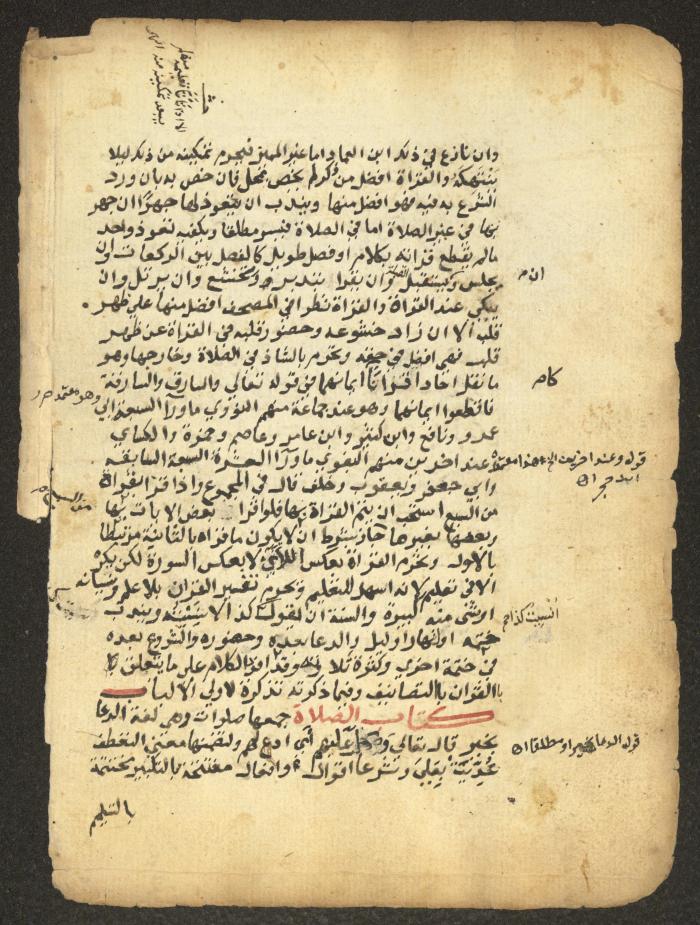 وان نازع في ذلك ابن العماد واما غير المميز فيحرم تمكينه من ذلك ليلا
ينتهكه والقراة افضل من ذكر لم يخص بمحل فان خص به بان ورد
الشرع به فيه فهو افضل منها ويندب ان يتعوذ لها جهرا ان جهر
بها في غير الصلاة اما في الصلاة فيسر مطلقا ويكفيه تعوذ واحد
مالم يقطع قراته بكلام او فصل طويل كالفصل بين الركعات وان
يجلس ويستقبل وان يقرا بتدبر وتخشع وان يرتل وان
يبكي عند القراة والقراة نظرا في المصحف افضل منها علي ظهر
قلب الا ان زاد خشوعه وحضور قلبه في القراة عن ظهر
قلب فهي افضل في حقه وتحرم بالشاذ في الصلاة وخارجها وهو
ما نقل احادا قرانا ايمانهما في قوله تعالي والسارق والسارقة
فاقطعوا ايمانهما وهو عند جماعة منهم النووي ما ورا السبعة ابي
عمرو ونافع وابن كثير وابن عامر وعاصم وحمزة والكساي
وعند اخرين منهم البغوي ما ورا العشرة السبعة السابقة
وابي جعفر ويعقوب وخلف قال في المجموع واذا قرا بقراة
من السبع استحب ان يتم القراة بها فلو قرا بعض الايات بها
وبعضها بغيرها جاز بشرط ان لا يكون ما قراه بالثانية مرتبطا
بالاولي وتحرم القراة بعكس الآي لا بعكس السور لكن يكره
الا في تعليم لانه اسهل للتعليم ويحرم تفسير القران بلا علم ونسيانه
او شي منه كبيرة والسنة ان يقول انسيت كذا لا نسيته ويندب
ختمه اول نهار او ليل والدعا بعده وحضوره والشروع بعده
في ختمة اخري وكثرة تلاوته وقد افرد الكلام علي ما يتعلق
بالقران بالتصانيف وفيما ذكرته تذكرة لاولي الالباب
كتاب الصلاة جمعها صلوات وهي لغة الدعا
بخير قال تعالي وصل عليهم اي ادع لهم ولتضمنها معني التعطف
عديت بعلي وشرعا اقوال وافعال مفتتحة بالتكبير مختتمة
بالتسليم
ان
كام
وهو معتمد م ر
قوله وعند اخرين الخ هذا معتمد
ابن حجر اه
انسيت كذا
قوله الدعا بخير او مطلقا اه